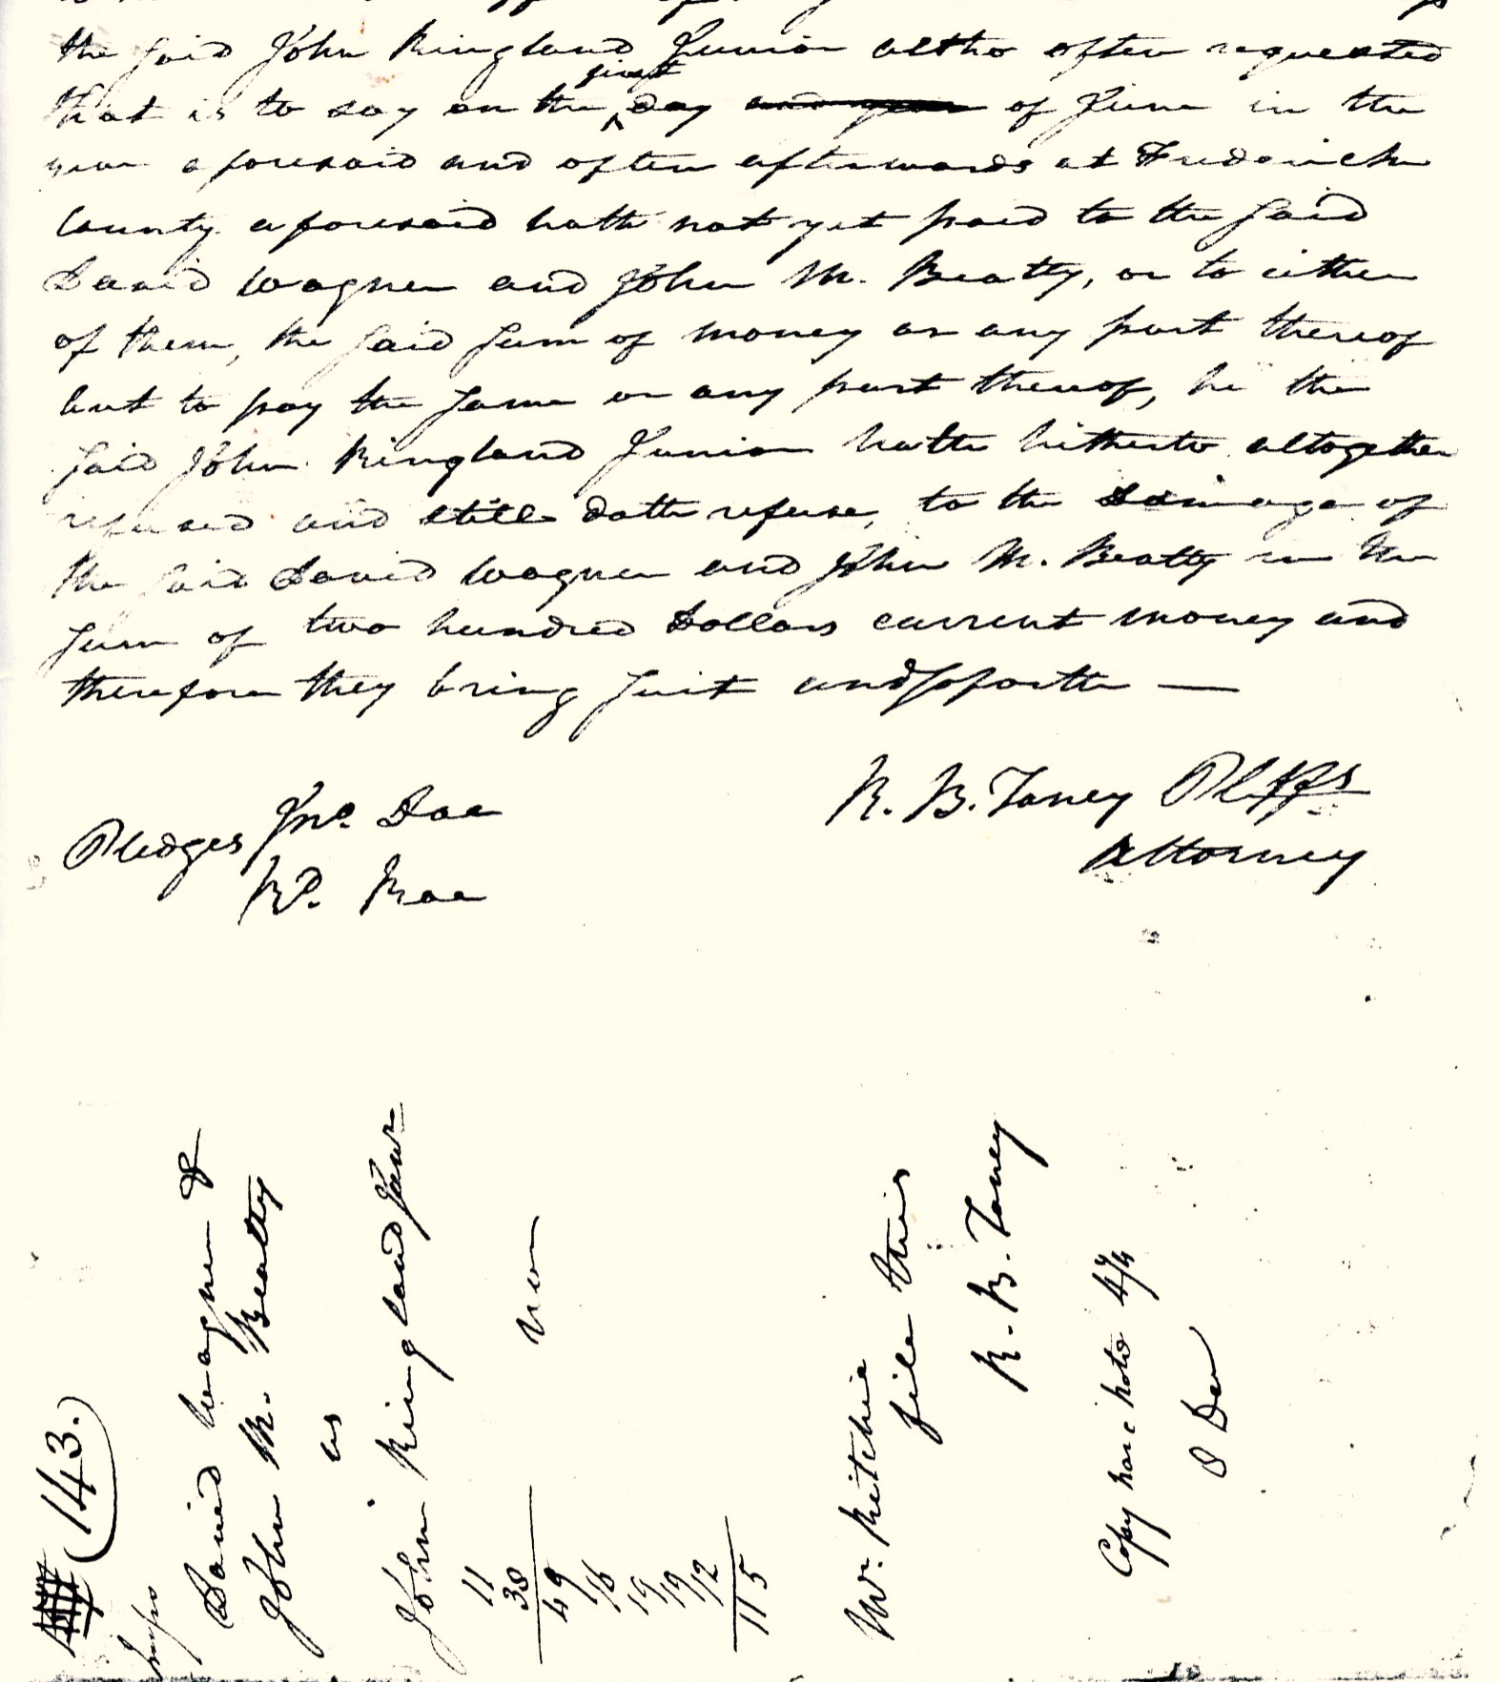 the said John Kingland Junior altho often requested
that is to say on the first day and year of June in the
year aforesaid and often afterwards at Frederick
County aforesaid hath not yet paid to the said
David Wagner and John M. Beatty, or to either
of them, the said sum of money or any part thereof
but to pay the same or any part thereof, he the
said John Kingland Junior hath hitherto altogether
refused and still doth refuse, to the Damage of
the said David Wagner and John M. Beatty in the
sum of two hundred Dollars current money and
therefore they bring suit and
Jno. Doe
Pledges
Rd. Roe
R. B. Taney Pltffs
Attorney
143.
David Wagner &
John M. Beatty
vs
John Kingland Junr
Nar
11
38
49
16
19
19
12
115
Mr. Ritchie
file this
R. B. Taney
Copy narr